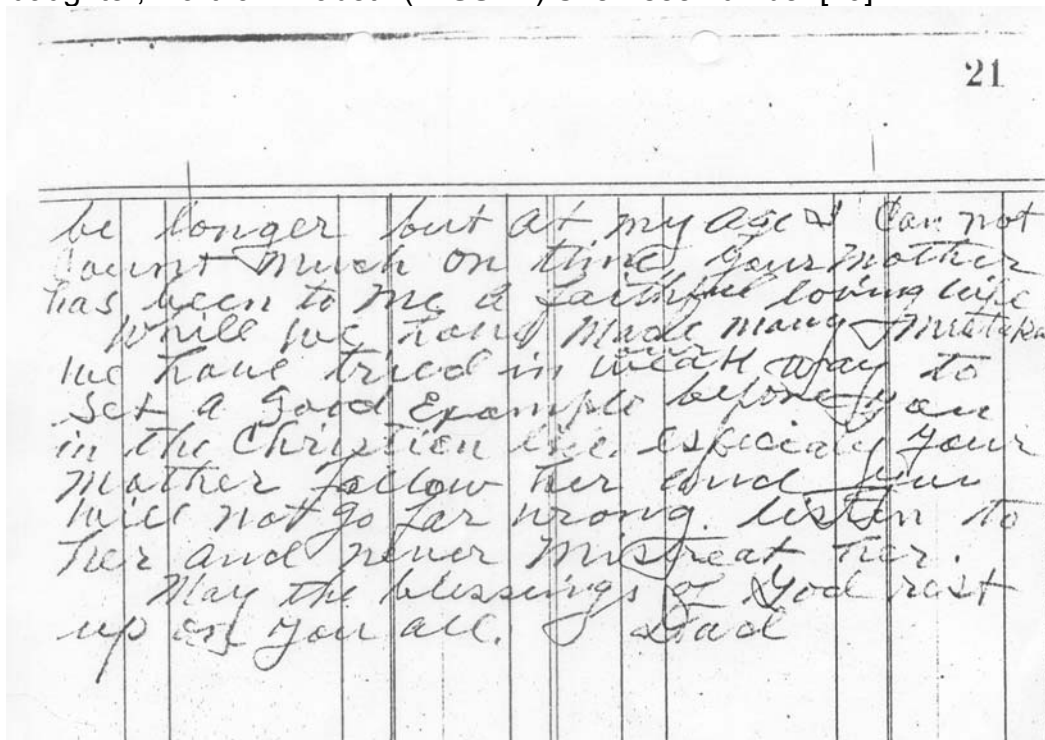 21
be longer but at my age I can not
count much on time your mother
has been to me a faithful loving wife
While we have made many mistakes
we have tried in our weak way to
set a good Example before you
in the Christien life. especialy your
mother follow her and you
will not go far wrong. listen to
her and never mistreat her.
May the blessings of God rest
up on you all. Dad